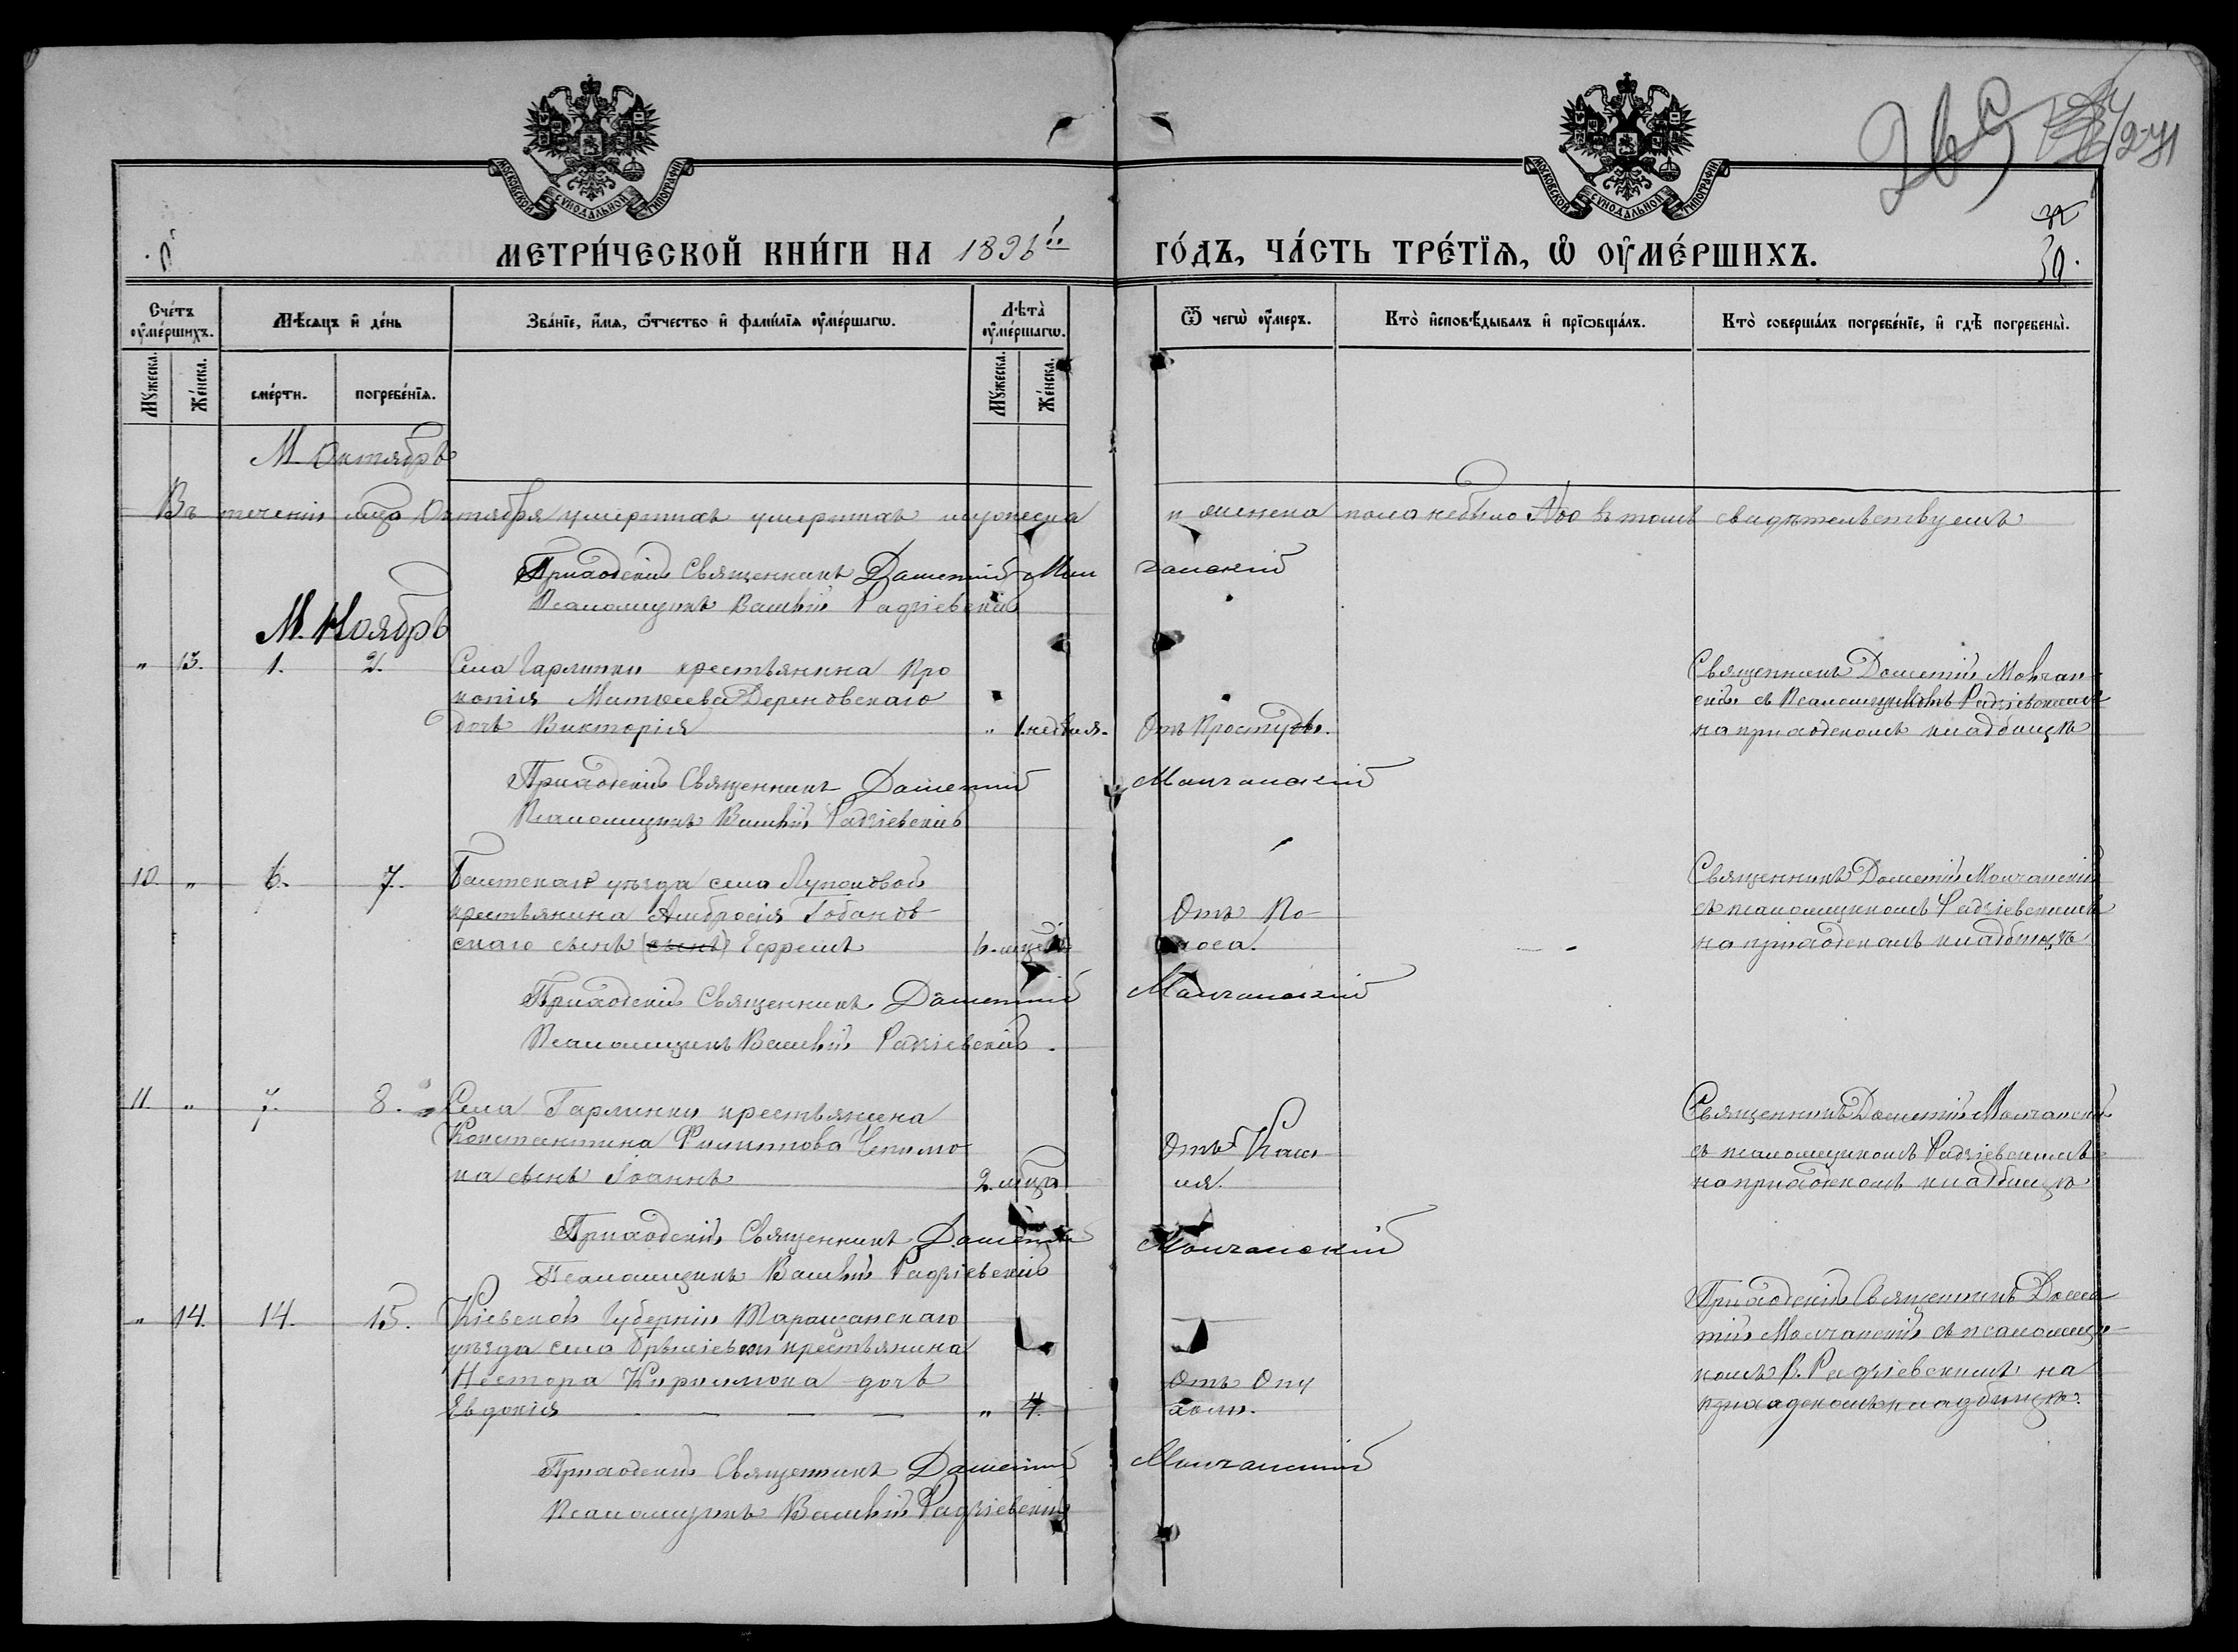 МОСКОВСКОЙ СѴНОДАЛЬНОЙ ТИПОГРАФІИ
МОСКОВСКОЙ СѴНОДАЛЬНОЙ ТИПОГРАФІИ
МЕТРИ́ЧЕСКОЙ КНИ́ГИ НА 1896 ГО́ДЪ, ЧА́СТЬ ТРЕ́ТЇѦ, Ѡ҆ ОУ҆МЕ́РШИХЪ.
Сче́тъ оу҆ме́ршихъ.
Мѣ́сѧцъ и҆ де́нь
Зва́нїе, и҆́мѧ, ѻ҆́тчество и҆ фами́лїѧ оу҆ме́ршагѡ.
Лѣта̀ оу҆ме́ршагѡ.
Ѿ чегѡ̀ оу҆́меръ.
Кто̀ и҆сповѣ́дывалъ и҆ прїѡбща́лъ.
Кто̀ соверша́лъ погребе́нїе, и҆ гдѣ̀ погребены̀.
Мꙋ́жеска.
Же́нска.
сме́рти.
погребе́нїѧ.
Мꙋ́жеска.
Же́нска.
М. Октябрь
Въ теченіи мца Октября умершихъ умершихъ мужеска и женска пола небыло въ томъ свидѣтельствуемъ
Приходскій Священникъ Дометій Молчанскій
Псаломщикъ Василій Радзіевскій
М. Ноябрь
" 13. 1. 2. Села Гарлинки крестьянина Про
копія Матѳеева Дерновскаго
дочь Викторія " 1. недѣля. Отъ Простуды.
Священникъ Дометій Молчан-
скій съ Псаломщикомъ Радзіевскимъ
на приходскомъ кладбищѣ
Приходскій Священникъ Дометій Молчанскій
Псаломщикъ Василій Радзіевскій
10. " 6. 7. Балтскаго уѣзда села Луполовой
крестьянина Амбросія Гобанов-
скаго сынъ (сынъ) Ефремъ 6. мцев Отъ По-
носа.
Священникъ Дометій Молчанскій
съ псаломщикомъ Радзіевскимъ
на приходскомъ кладбищѣ
Приходскій Священникъ Дометій Молчанскій
Псаломщикъ Василій Радзіевскій.
11. " 7. 8. Села Гарлинки крестьянина
Константина Филиппова
на сынъ Іоаннъ 2. мца Отъ Каш
ля.
Священникъ Дометій Молчанскій
съ псаломщикомъ Радзіевскимъ
на приходскомъ кладбищѣ
Приходскій Священникъ Дометій Молчанскій
Псаломщикъ Василій Радзіевскій
" 14. 14. 15. Кіевской Губерніи Таращанскаго
уѣзда села крестьянина
Нестора Кирилюка дочь
Евдокія " 4. Отъ Опу
холи.
Приходскій Священникъ Доме
тій Молчанскій съ псаломщи-
комъ В. Радзіевскимъ на
приходскомъ кладбищѣ.
Приходскій Священникъ Дометій Молчанскій
Псаломщикъ Василій Радзіевскій